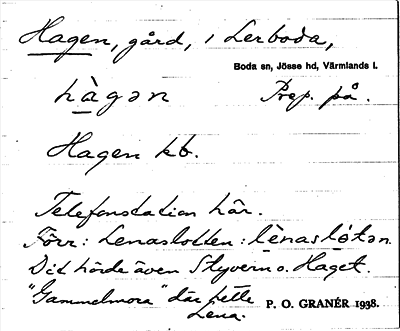 Hagen, gård, i Lerboda,
Boda sn, Jösse hd, Värmlands l.
hàgən Prep. på.
Hagen kb.
Telefonstation här.
Förr: Lenaslotten: lènaslòtən.
Dit hörde även Styvern o. Haget.
"Gammelmora" där hette
Lena. P. O. GRANÉR 1938.